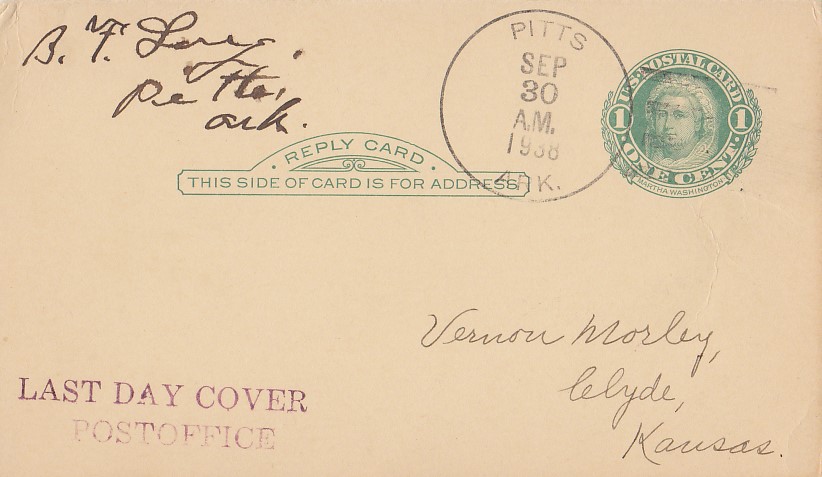 B. F.
Pitts,
ark.
PITTS
SEP
30
A.M.
1938
ARK.
U.S. POSTAL CARD
1 1
ONE CENT
MARTHA WASHINGTON
REPLY CARD
THIS SIDE OF CARD IS FOR ADDRESS
Vernon Morley,
Clyde,
Kansas.
LAST DAY COVER
POSTOFFICE